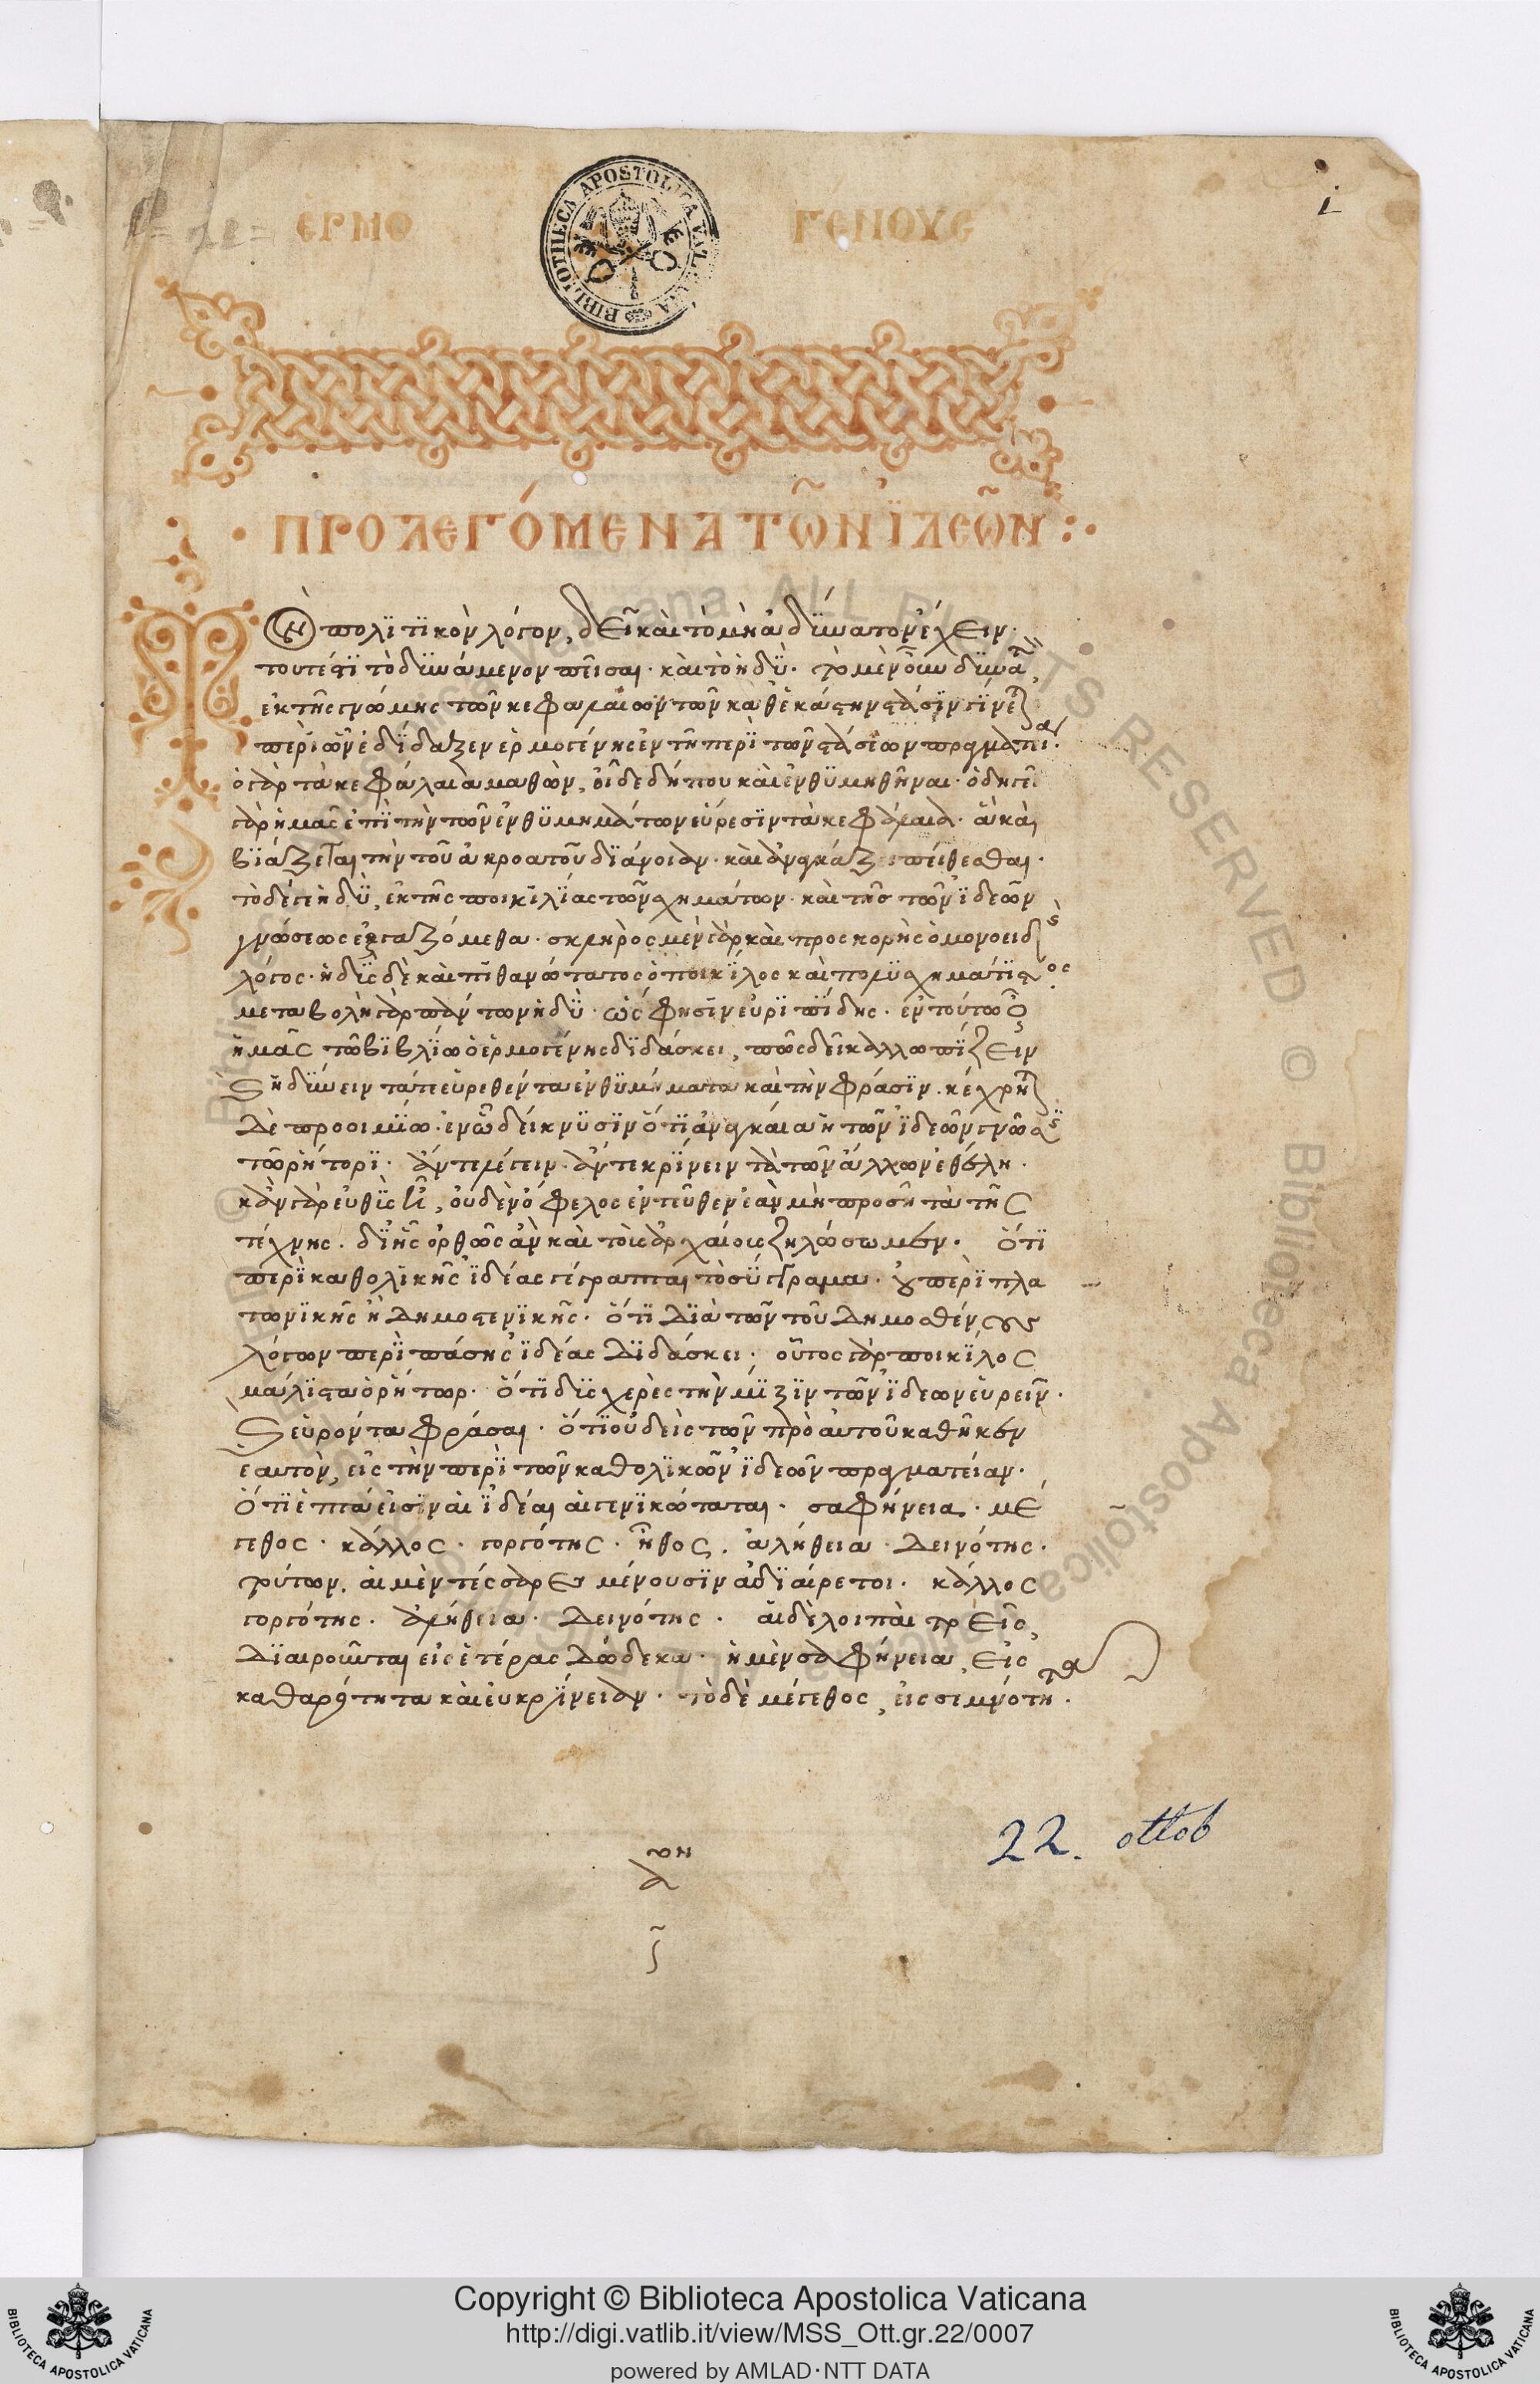 ΕΡΜΟ ΓΕΝΟΥΣ
i
BIBLIOTHECA APOSTOLICA VATICANA
ΠΡΟΛΕΓΌΜΕΝΑ ΤΩ͂Ν ἸΔΕΩ͂Ν
Τὸν πολιτικὸν λόγον, δεῖ καὶ τὸ μὴ ἀδύνατον ἔχειν·
τουτέστι τὸ δυνάμενον πεῖσαι· καὶ τὸ ἡδύ· τὸ μὲν οὖν
ἐκ τῆς γνώμης τῶν κεφαλαίων τῶν καθ' ἑκάστην στάσιν
περὶ ὧν ἐδίδαξεν ἑρμογένης ἐν τῇ περὶ τῶν στάσεων
ὁ γὰρ τὰ κεφάλαια μαθὼν, οἶδε δήπου καὶ ἐνθυμηθῆναι· ὁδηγεῖ
γὰρ ἡμᾶς ἐπὶ τὴν τῶν ἐνθυμημάτων εὕρεσιν τὰ κεφάλαια· ἃ καὶ
βιάζεται τὴν τοῦ ἀκροατοῦ διάνοιαν· καὶ ἀναγκάζει πείθεσθαι·
τὸ δέ γε ἡδύ, ἐκ τῆς ποικιλίας τῶν σχημάτων· καὶ τῆς τῶν ἰδεῶν
γνώσεως· σκληρὸς μὲν γὰρ καὶ προσκορὴς ὁ μονοειδὴς
λόγος· ἡδὺς δὲ καὶ πιθανώτατος ὁ ποικίλος καὶ πολυσχημάτιστος·
μεταβολὴ γὰρ πάντων ἡδύ· ὥς φησιν εὐριπίδης· ἐν τούτῳ
ἡμᾶς τῷ βιβλίῳ ὁ ἑρμογένης διδάσκει, πῶς δεῖ καλλωπίζειν
καὶ ἡδύνειν τά γε εὑρεθέντα ἐνθυμήματα καὶ τὴν φράσιν· κέχρηται
δὲ προοιμίῳ· ἐν ᾧ δείκνυσιν ὅτι ἀναγκαία ἡ τῶν ἰδεῶν γνῶσις
τῷ ῥήτορι· ἄν τε λέγειν· ἄν τε κρίνειν τὰ τῶν ἄλλων ἐθέλῃ·
οὐδὲν ὄφελος ἐντεῦθεν ἐὰν μὴ προσῇ τὰ τῆς
τέχνης· δι' ἧς ὀρθῶς ἂν καὶ τοὺς ἀρχαίους ζηλώσωμεν· ὅτι
περὶ καθολικῆς ἰδέας γέγραπται τὸ σύγγραμμα· οὐ περὶ πλα
τωνικῆς ἢ δημοστενικῆς· ὅτι διὰ τῶν τοῦ δημοσθένους
λόγων περὶ πάσης ἰδέας διδάσκει· οὗτος γὰρ ποικίλος
μάλιστα ὁ ῥήτωρ· ὅτι δυσχερὲς τὴν μίξιν τῶν ἰδεων εὑρεῖν·
καὶ εὑρόντα φράσαι· ὅτι οὐδεὶς τῶν πρὸ αὐτοῦ καθῆκεν
ἑαυτὸν, εἰς τὴν περὶ τῶν καθολικῶν ἰδεῶν πραγματείαν·
ὅτι ἑπτά εἰσιν αἱ ἰδέαι αἱ γενικώταται· σαφήνεια· μέ
γεθος· κάλλος· γοργότης· ἦθος· ἀλήθεια· δεινότης·
τούτων, αἱ μὲν τέσσαρες μένουσιν ἀδιαίρετοι· κάλλος
γοργότης· ἀλήθεια· δεινότης· αἱ δὲ λοιπαὶ τρεῖς,
διαιροῦνται εἰς ἑτέρας δώδεκα· ἡ μὲν σαφήνεια, εἰς
καθαρότητα καὶ εὐκρίνειαν· τὸ δὲ μέγεθος, εἰς σεμνότητα·
22. ottob
Copyright © Biblioteca Apostolica Vaticana
http://digi.vatlib.it/view/MSS_Ott.gr.22/0007
powered by AMLAD·NTT DATA